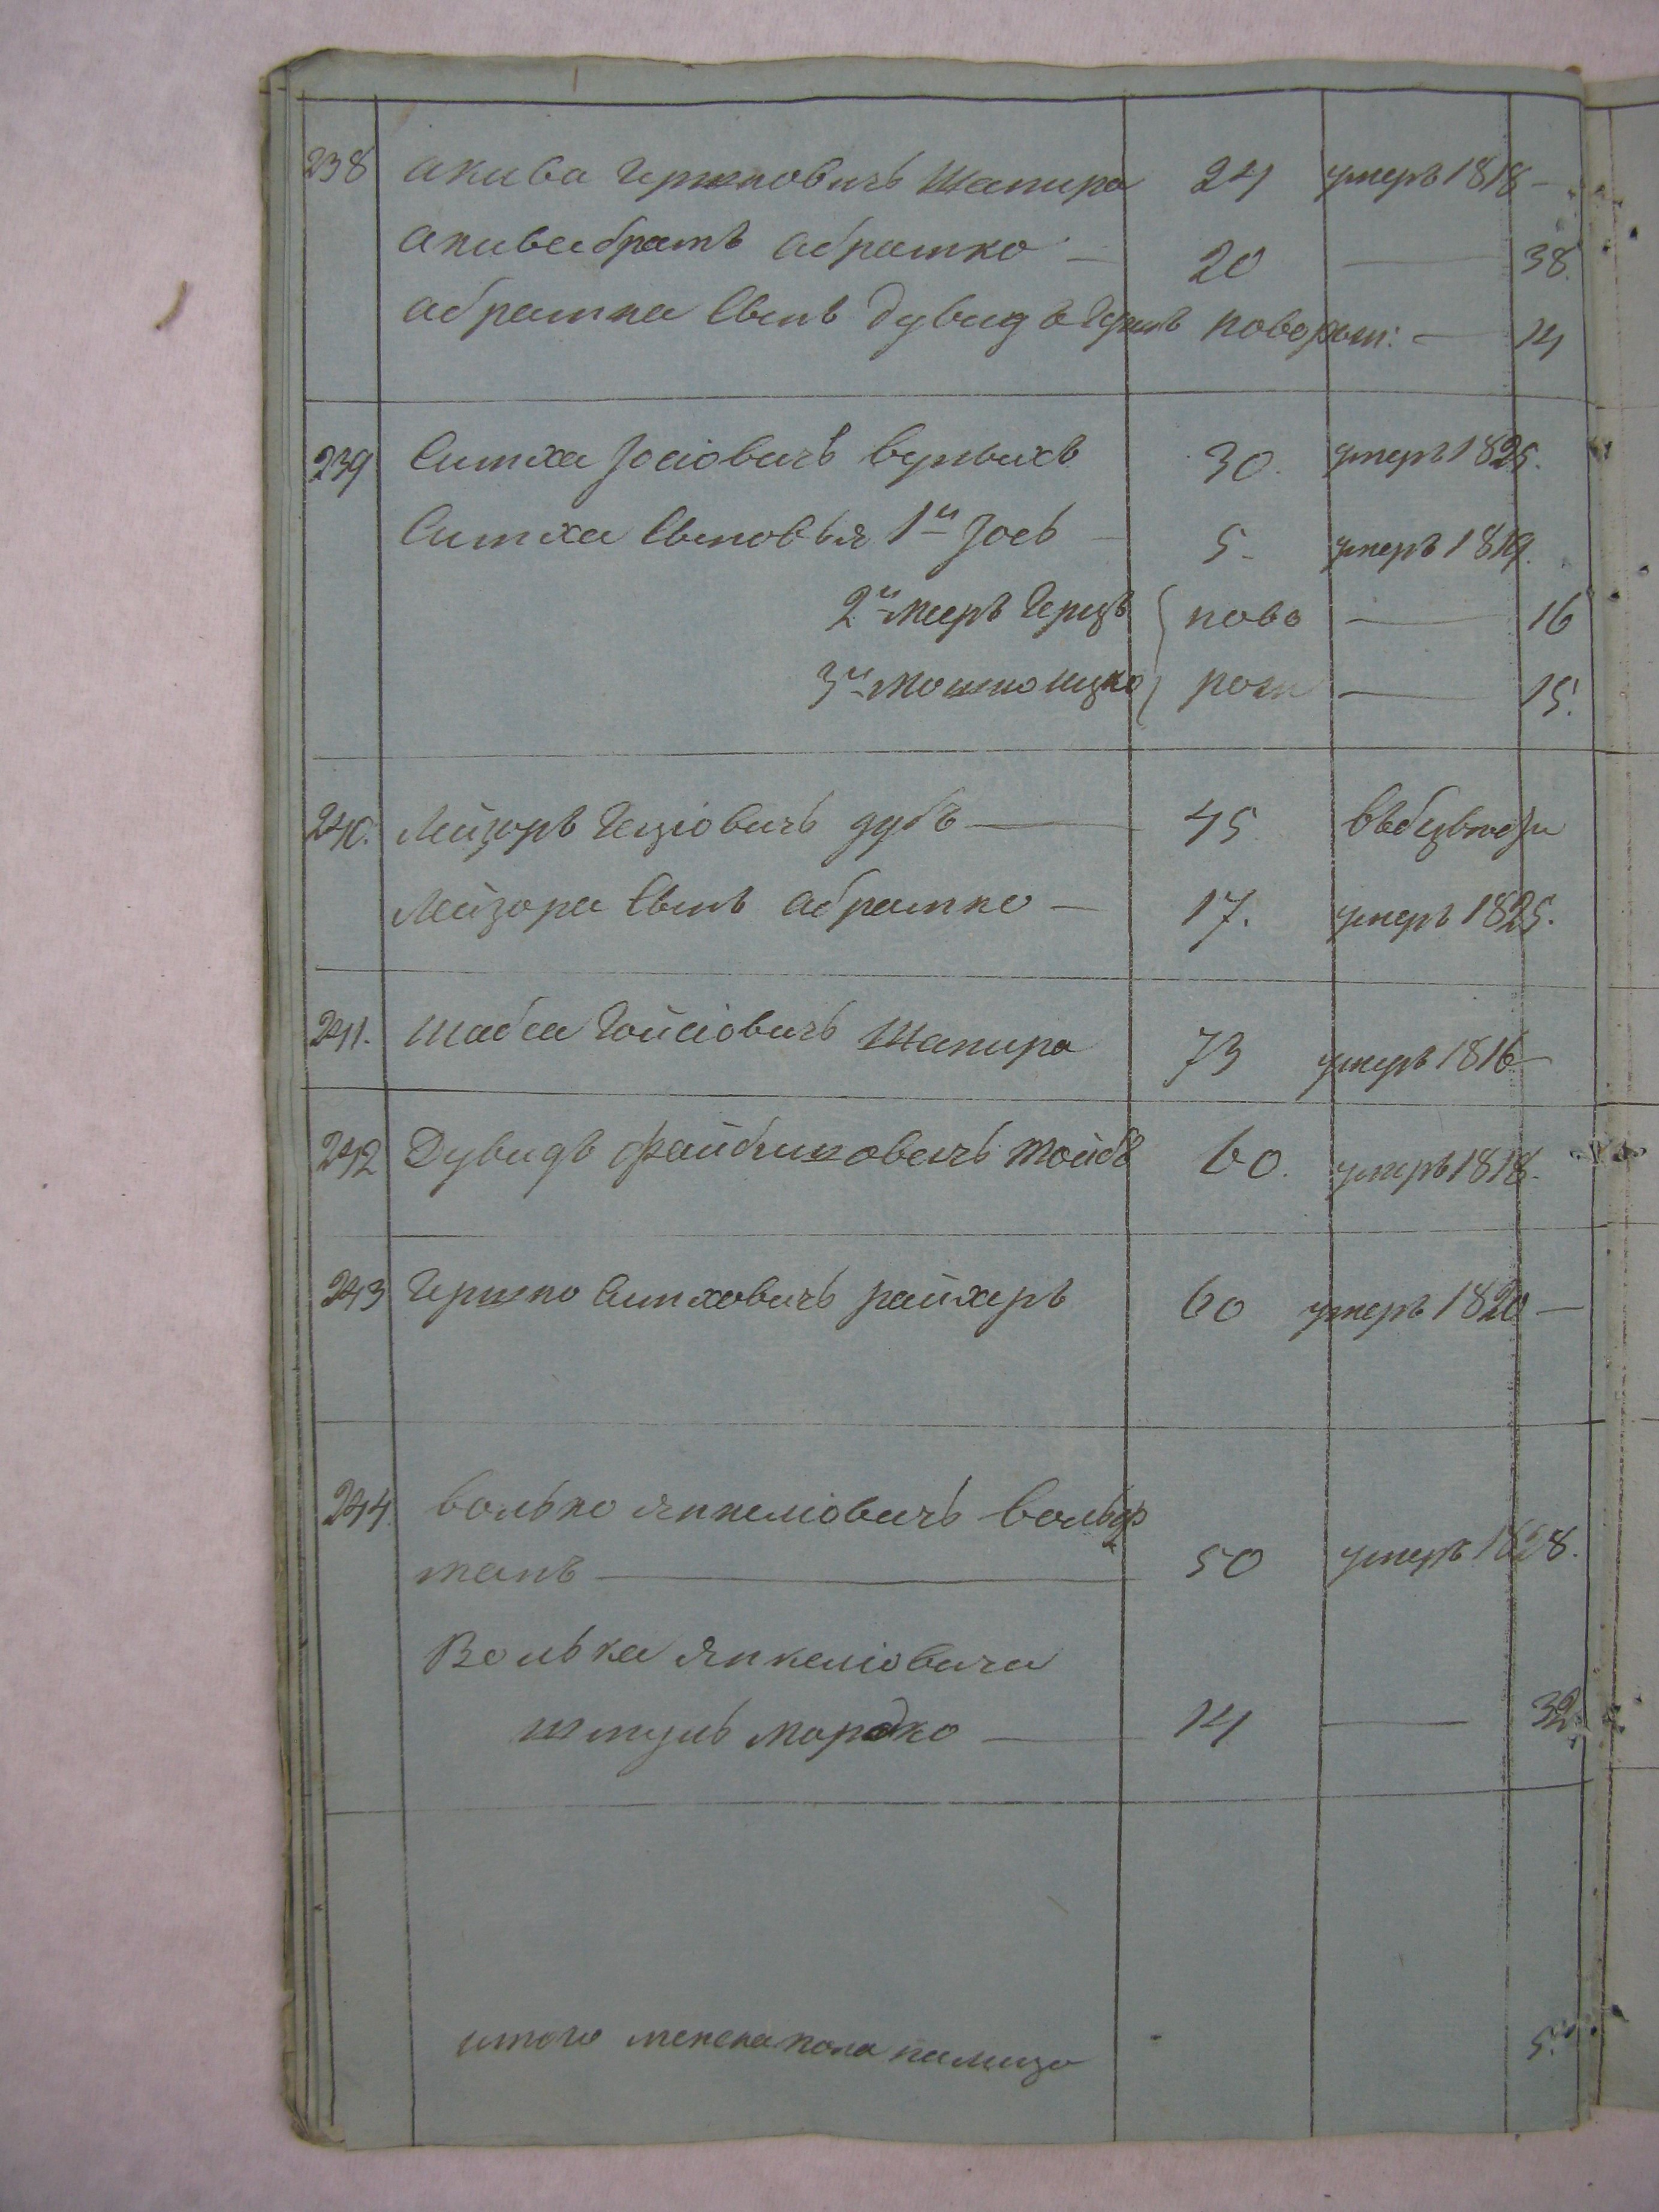 238 Акива Гершковичъ Шапиро 24 умеръ 1818 —
Акивы братъ Абрамко — 20 — 38.
Абрамка Сынъ Дувид Гершъ новорож: — 14
239 Симха Іосіовичъ 30. умеръ 1825.
Симха Сыновья 1й Іось — 5. умеръ 1819.
2й Мееръ Герцъ ново — 16
3й Мошко Ицко рож — 15.
240. Лейзоръ Гецiовичъ дубъ — 45
Лейзора Сынъ Абрамко — 17. умеръ 1825.
241. Шабса Іойсіовичъ Шапиро 73 умеръ 1816 —
242 Дувидъ Файбишовичъ Тойбъ 60. умеръ 1818.
243 Гершко Симховичъ райхеръ 60 умеръ 1820 —
244. Волько Янкеліовичъ Вольф
манъ — 50 умеръ 1828.
Волька Янкеліовича
Шмуль Мордко — 14 — 32.
итого мужеска пола налицо 5.